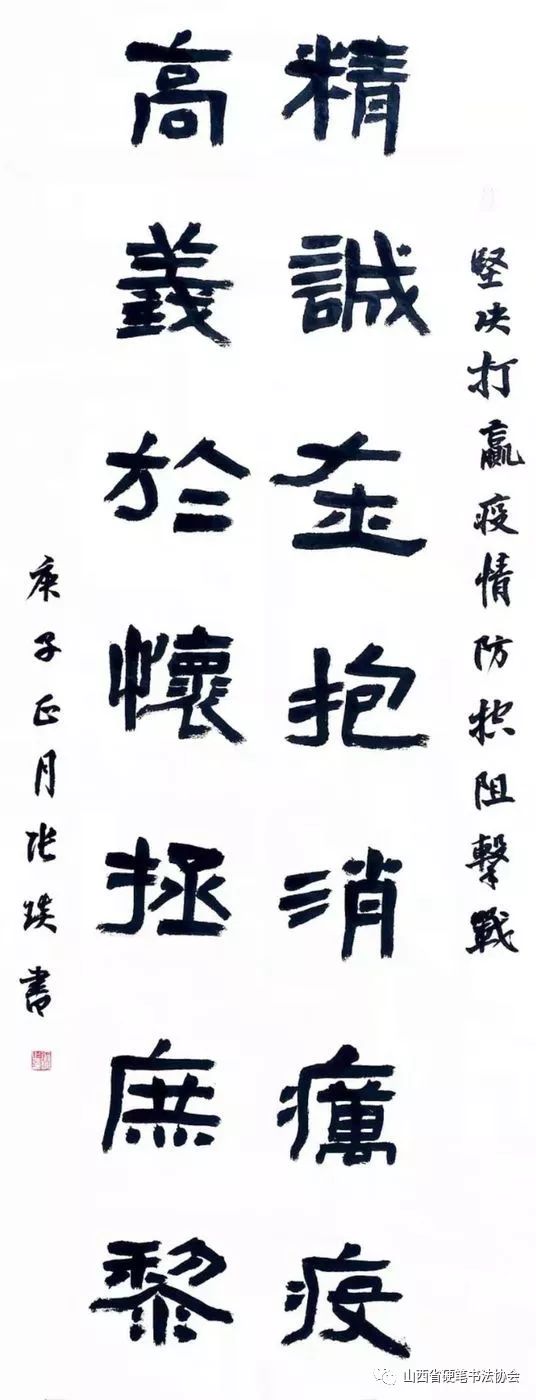 堅决打贏疫情防控阻擊戰
精誠在抱消癘疫
高義於懷拯庶黎
庚子正月张書
山西省硬笔书法协会